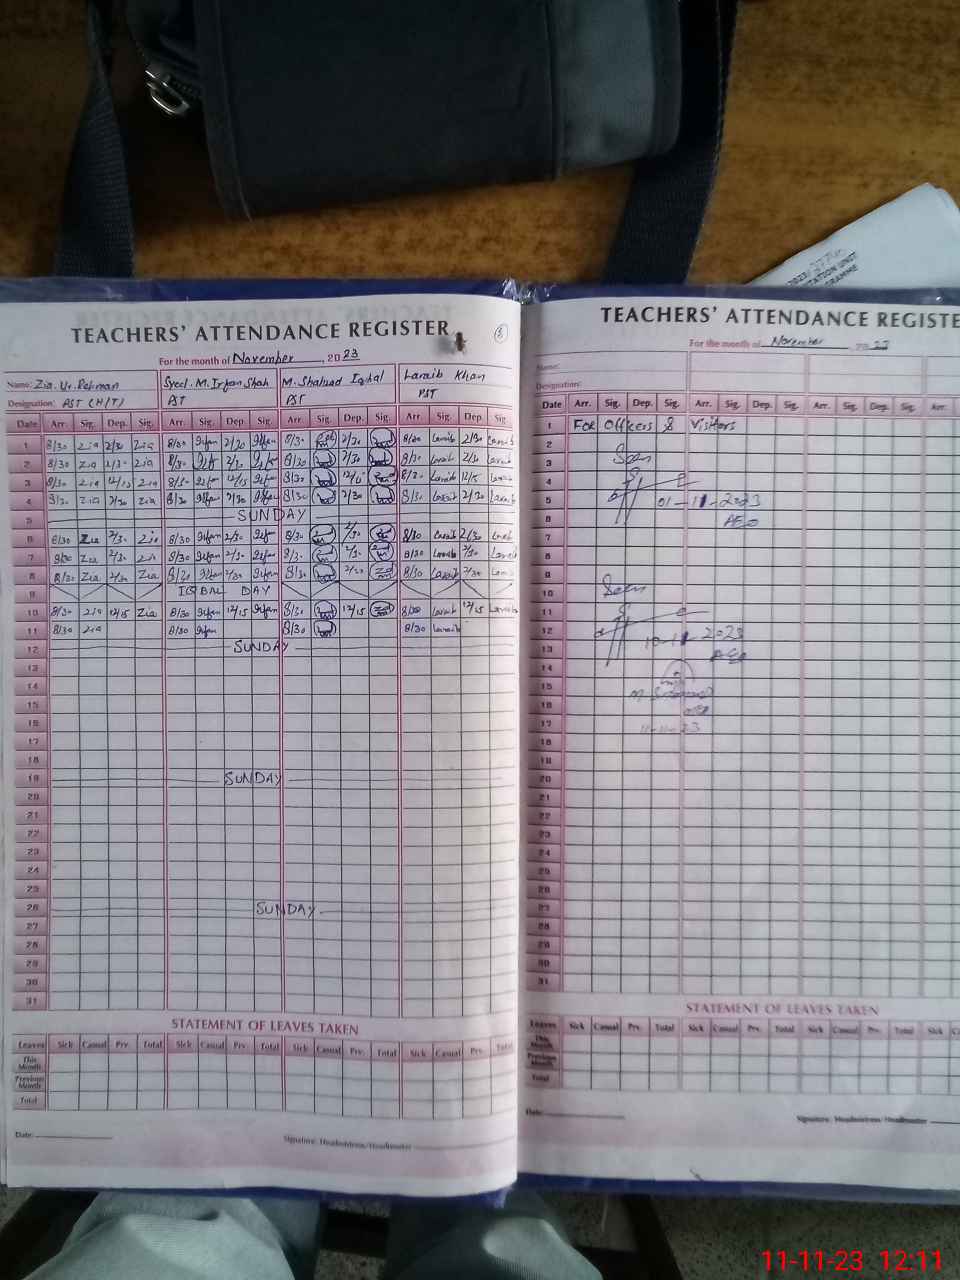 TATION UNIT
TEACHERS' ATTENDANCE REGISTER
For the month of November, 2023
Name: Zia. Ur. Rehman Syed. M. Irfan Shah M. Shahzad Iqbal Laraib Khan
Designation: PST (H/T) PST PST PST
Date Arr. Sig. Dep. Sig. Arr. Sig. Dep. Sig. Arr. Sig. Dep. Sig. Arr. Sig. Dep. Sig.
1 8/30 Zia 2/30 Zia 8/30 Irfan 2/30 Irfan 8/30 2/30 8/30 Laraib 2/30 Laraib
2 8/30 Zia 2/30 Zia 8/30 Irfan 2/30 Irfan 8/30 2/30 8/30 Laraib 2/30 Laraib
3 8/30 Zia 12/15 Zia 8/30 Irfan 12/15 Irfan 8/30 12/15 8/30 Laraib 12/15 Laraib
4 8/30 Zia 2/30 Zia 8/30 Irfan 2/30 Irfan 8/30 2/30 8/30 Laraib 2/30 Laraib
5 SUNDAY
6 8/30 Zia 2/30 Zia 8/30 Irfan 2/30 Irfan 8/30 2/30 8/30 Laraib 2/30 Laraib
7 8/30 Zia 2/30 Zia 8/30 Irfan 2/30 Irfan 8/30 2/30 8/30 Laraib 2/30 Laraib
8 8/30 Zia 2/30 Zia 8/30 Irfan 2/30 Irfan 8/30 2/30 8/30 Laraib 2/30 Laraib
9 IQBAL DAY
10 8/30 Zia 12/15 Zia 8/30 Irfan 12/15 Irfan 8/30 12/15 8/30 Laraib 12/15 Laraib
11 8/30 Zia 8/30 Irfan 8/30 8/30 Laraib
12 SUNDAY
13
14
15
16
17
18
19 SUNDAY
20
21
22
23
24
25
26 SUNDAY
27
28
29
30
31
STATEMENT OF LEAVES TAKEN
Leaves Sick Casual Prv. Total Sick Casual Prv. Total Sick Casual Prv. Total Sick Casual Prv. Total
This Month
Previous Month
Total
Date:
Signature: Headmistress/Headmaster
TEACHERS' ATTENDANCE REGISTE
For the month of November 2023
Name:
Designation:
Date Arr. Sig. Dep. Sig. Arr. Sig. Dep. Sig. Arr. Sig. Dep. Sig. Arr.
1 FOR Officers & Visitors
2
3 Seen
4
5 01-11-2023
6 AEO
7
8
9
10 Seen
11
12 10-11-2023
13 AEO
14
15
16
17 11-11-23
18
19
20
21
22
23
24
25
26
27
28
29
30
31
STATEMENT OF LEAVES TAKEN
Leaves Sick Casual Prv. Total Sick Casual Prv. Total Sick Casual Prv. Total Sick
This Month
Previous Month
Total
Date:
Signature: Headmistress/Headmaster
11-11-23 12:11